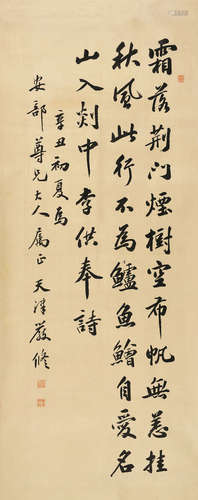 霜落荊門煙樹空布帆無恙挂
秋風此行不為鱸魚鱠自愛名
山入剡中李供奉詩
辛丑初夏為
安部尊兄大人屬正天津嚴修